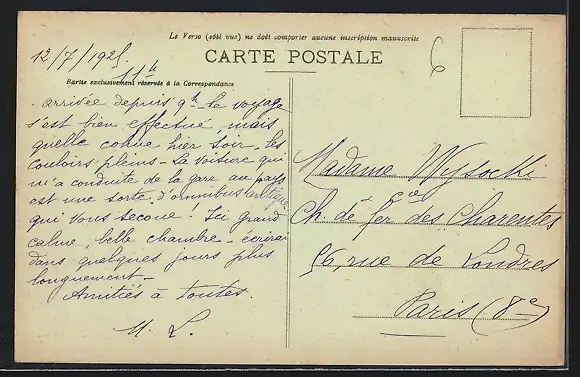 Le Verso (côté vue) ne doit comporter aucune inscription manuscrite
CARTE POSTALE
12/7/1925
11h
Partie exclusivement réservée à la Correspondance
6
Arrivée depuis 9h. Le voyage
s'est bien effectué, mais
quelle cohue hier soir, les
couloirs pleins - La voiture qui
m'a conduite de la gare au pays
est une sorte d'omnibus antique
qui vous secoue! Ici grand
calme, belle chambre - écrirai
dans quelques jours plus
longuement -
Amitiés à toutes.
M. L.
Madame Wysocki
Cie
Ch. de fer des Charentes
56, rue de Londres
Paris (8e)